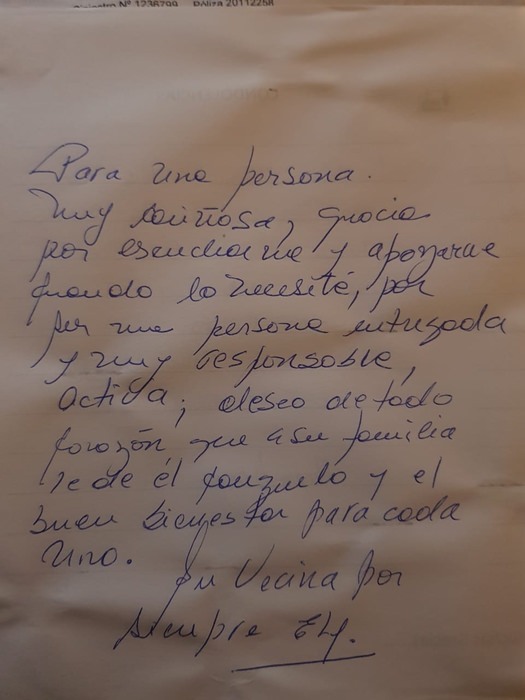 Nº 1236799 Póliza 20112258
Para una persona.
Muy cariñosa, gracia
por escucharme y apoyarme
quando lo necesité, por
ser una persona entregada
y muy responsable,
activa; deseo de todo
corazón, que a su familia
le de él conzuelo y el
buen bienestar para cada
uno.
Su Vecina por
siempre Ely.